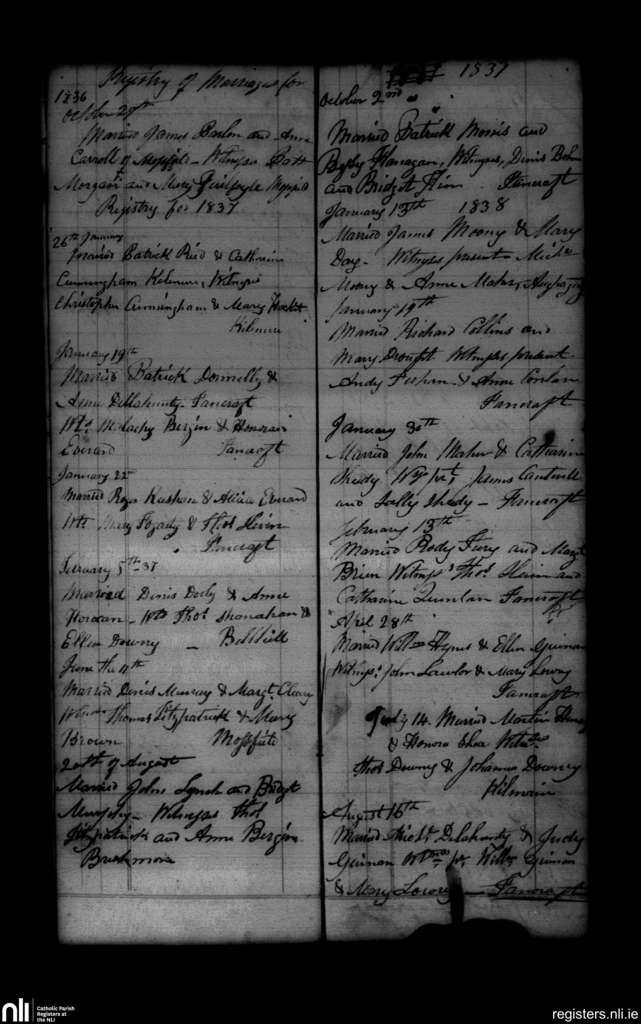 Registry of Marriages for
1836
October 20th
Married James and Anne
Carroll of Witnesses Patt
Morgan and Mary
Registry for 1837
26th January
Married Patrick Ried & Catharine
Cunningham Kilmure, Witnesses
Christopher Cunningham & Mary
Kilmure
January 19th
Married Patrick Donnelly &
Anne Dellahunty Fancroft
Wts. Malachy Bergin & Honorah
Everard Fancroft
January 22
Married & Alicia Everard
Wtts Mary Fogarty & Thos
Fancroft
February 5th 37
Married Denis Dooly & Anne
Horan Wts Thos. Shanahan &
Ellen Downy
June the 11th
Married Denis Murray & Margt. Cleary
Thomas Fitzpatrick & Mary
Brown
20th of August
Married John Lynch and Bridget
Murphy Witnesses Thos
Fitzpatrick and Anne Bergin
1837
October 2nd
Married Patrick Morris and
Flanagan, Witnesses, Dinis
and Bridget Fancroft
January 13th 1838
Married James Moony & Mary
Day. Witnesses present Michl
Moony & Anne Maher,
January 19th
Married Richard Collins and
Mary Drought Witnesses present
Andy & Anne Conlan
Fancroft
January 30th
Married John Maher & Catharine
Sheedy James Cantwell
and Sally Sheedy – Fancroft
February 13th
Married Rody Fury and Margt
Brien Witnesses Thos. and
Catharine Quinlan Fancroft
April 28th
Married Willm Hynes & Ellen Guinan
Witness. John Lawlor & Mary Lowry
Fancroft
July 14. Married Martin
& Honora Shea
Thos Downy & Johanna Downey
August 16th
Married Dellahunty & Judy
Guinan Willm Guinan
& Mary Lowry – Fancroft
nli
Catholic Parish
Registers at
the NLI
registers.nli.ie